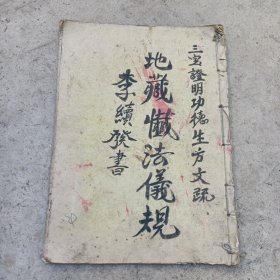 三宝證明功德生方文疏
地藏懺法儀規
李續發書